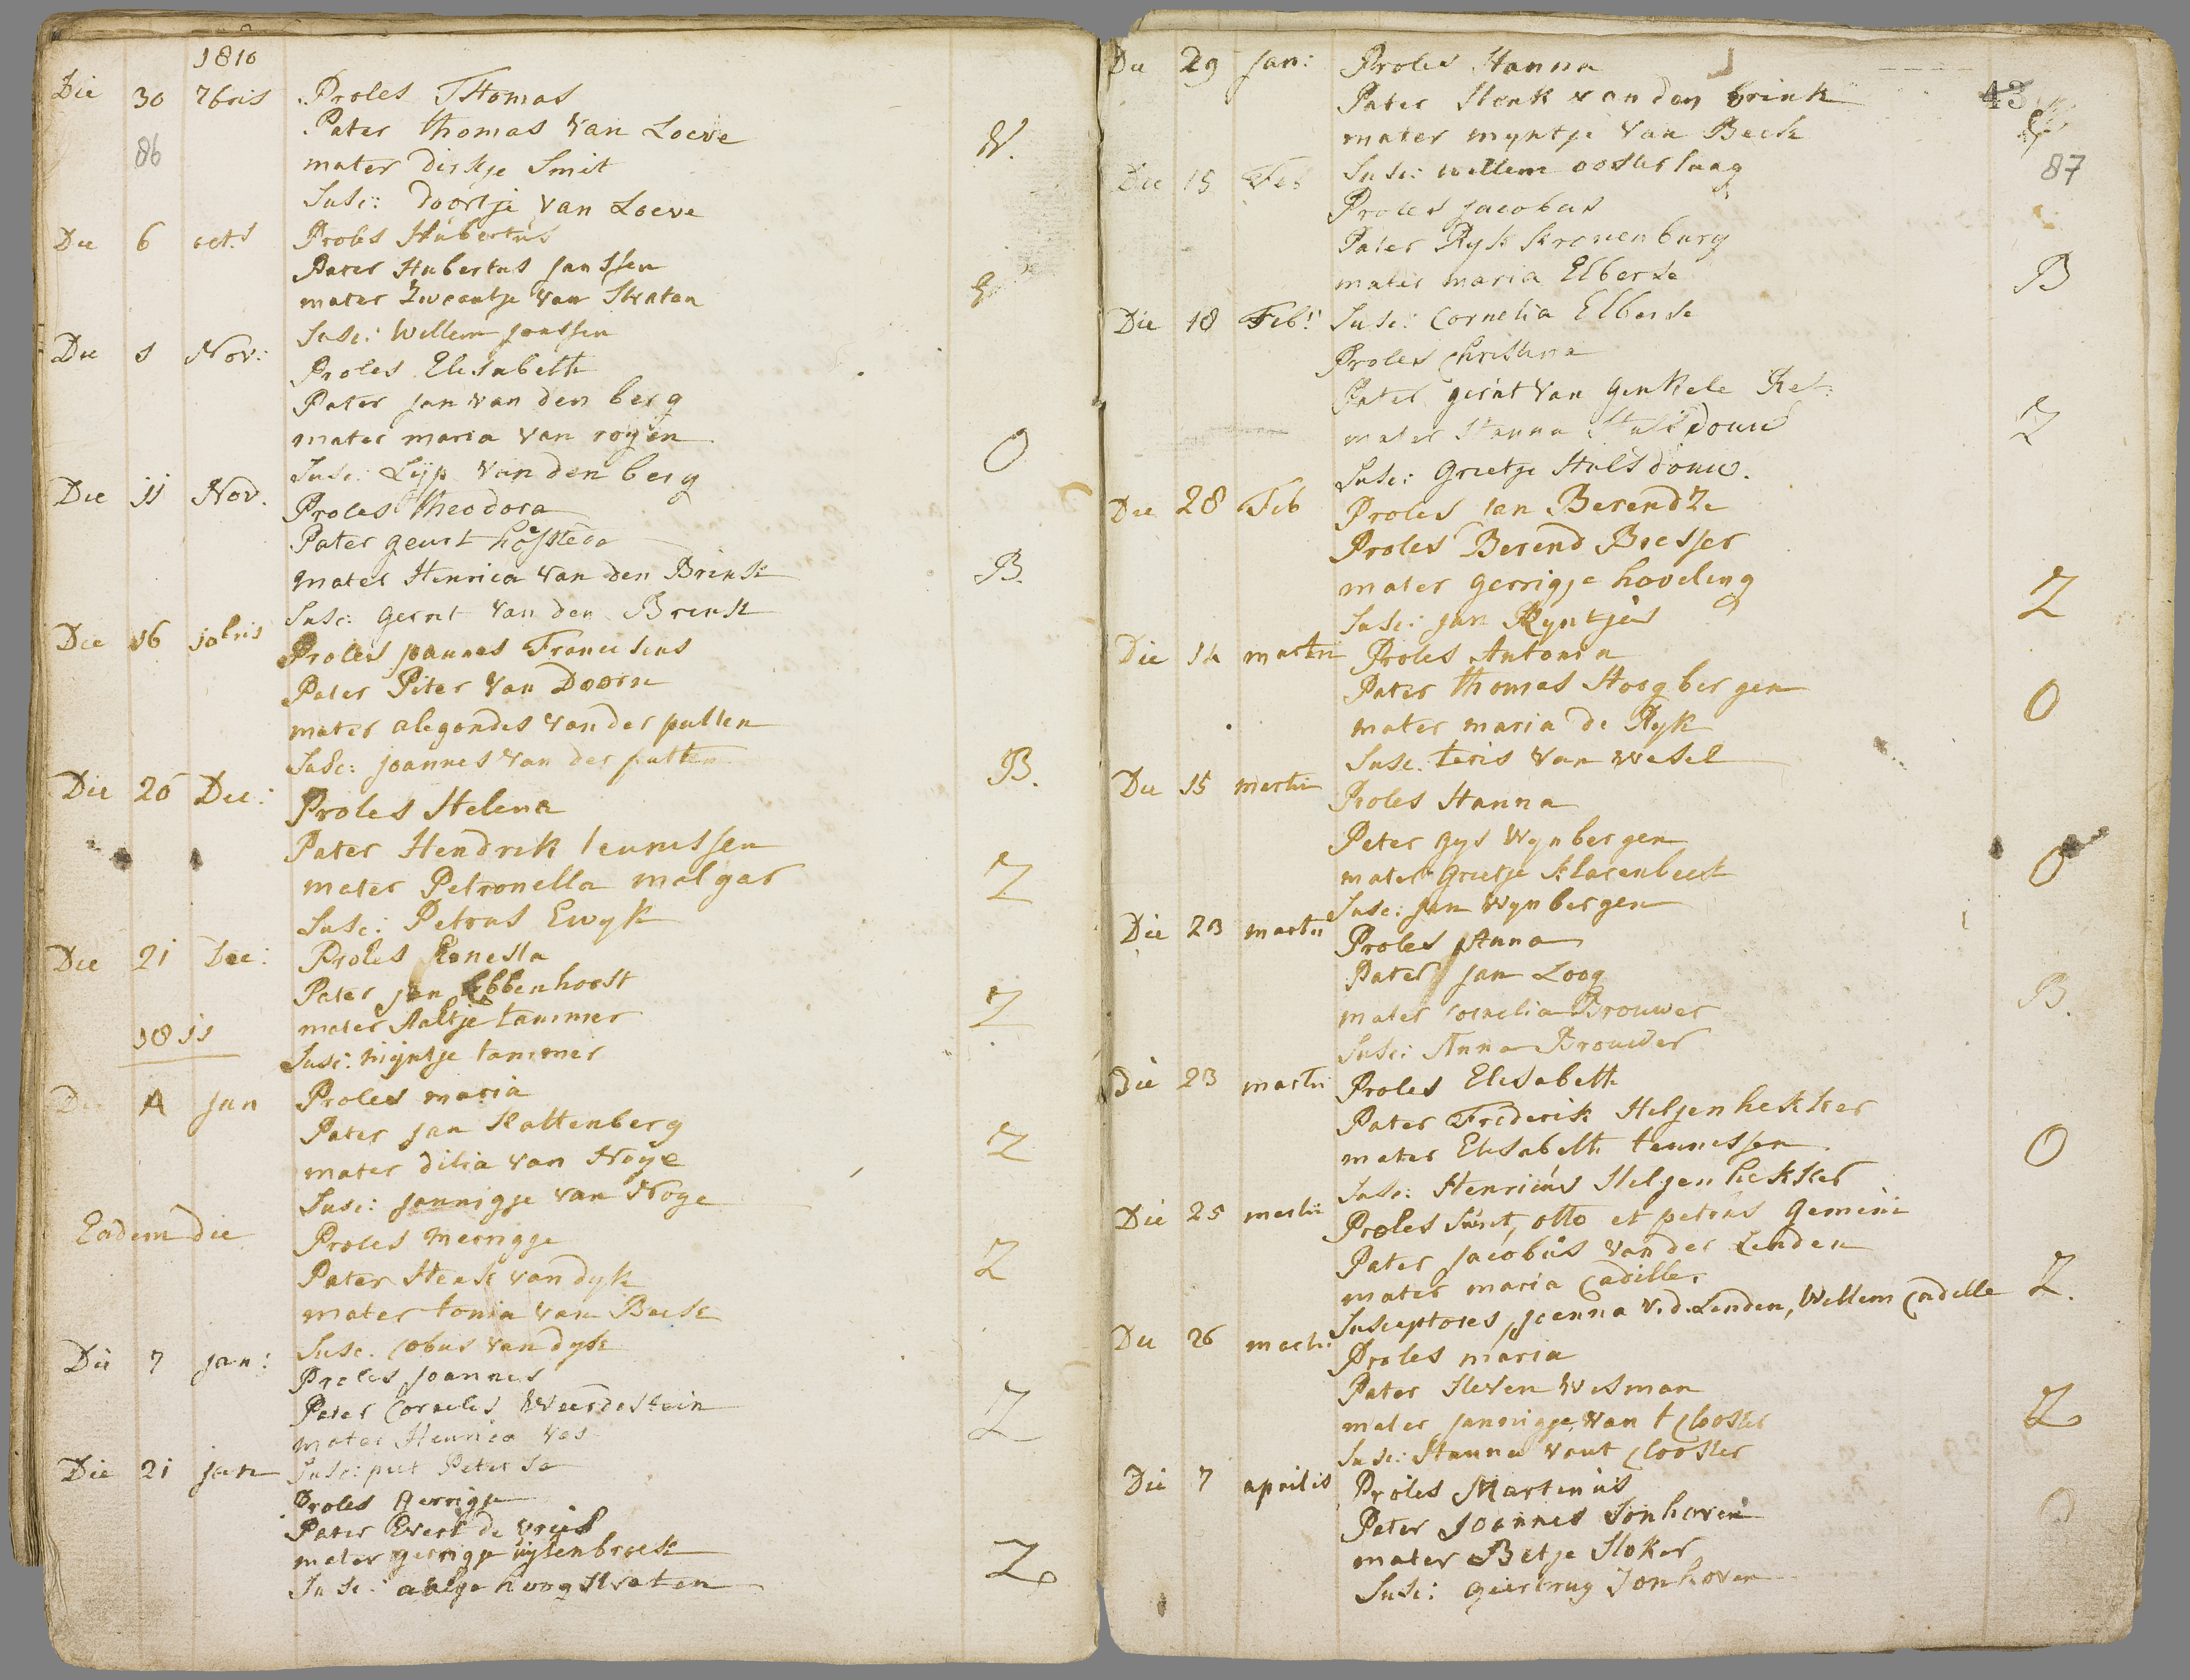 1810
Die 30 7bris Proles THomas
86
Pater thomas van Loeve
mater dirkje Smit
V.
Susc: doortje van Loeve
Die 6 oct.s Proles Hubertus
Pater Hubertus Janssen
mater Zweantje van Straten
Susc: Willem Janssen
Die 1 Nov: Proles Elisabeth
Pater Jan van den berg
mater maria van royen
O
Susc: Lijp van den berg
Die 11 Nov. Proles theodora
Pater geurt hofstede
mater Henrica van den Brink
B.
Susc: gerrit van den Brink
Die 16 10bris Proles joannes Franciscus
Pater Piter van Doorn
mater alegondes van der putten
Susc: joannes van der putten
B.
Die 20 Dec: Proles Helena
Pater Hendrik teunissen
mater Petronella malgar
Z
Susc: Petrus Ewyk
Die 21 Dec: Proles
Pater jan Ebbenhorst
mater Aaltje tammer
Z
1811
Susc: mijntje tammer
Die 4 jan Proles maria
Pater jan Kattenberg
mater dilia van Noye
Z
Susc: jannigje van Noge
Eadem die Proles merrigje
Pater Henk van dyk
Z
mater tonia van Beek
Susc. Cobus van dyk
Die 7 jan: Proles Joannes
Pater Cornelis Weerdestein
mater Henrica Vos
Z
Susc: piet Peterse
Die 21 jan
Proles Gerrigje
Pater Evert de vries
mater gerrigje uytenbroek
Z
Susc: aaltje hoogstraten
Die 29 jan: Proles Hanna
43
Pater Henk van den brink
mater myntje van Beek
87
Susc: willem oosterlaag
Die 15 Feb
Proles jacobus
Pater Ryk Kronenburg
mater maria Elberse
B
Susc: Cornelia Elberse
Die 18 Feb:
Proles Christina
Pater gerrit van Ginkele Ref:
mater Hanna Hulsdouw
Z
Susc: Grietje Hulsdouw.
Die 28 Feb Proles Jan Berendze
Proles Berend Bresser
mater gerrigje hoveling
Z
Susc: jan Ryntjes
Die 14 martii Proles Antonia
Pater thomas Hoogbergen
mater maria de Ryk
O
Susc. teris van wesel
Die 15 martii Proles Hanna
Pater Gys Wynbergen
mater Grietje Klarenbeek
O
Susc: jan Wynbergen
Die 23 martii Proles Anna
Pater jan Loog
mater Cornelia Brouwer
B.
Susc: Anna Brouwer
Die 23 martii Proles Elisabeth
Pater Frederik Heljenhekker
mater Elisabeth teunissen
O
Susc: Henricus Heljenhekker
Die 25 martii Proles sunt, otto et petrus gemini
Pater jacobus van der Linden
mater maria Cadille,
Z.
Susceptores, joanna v.d. Linden, Willem Cadille
Die 26 martii Proles maria
Pater Steven Wisman
mater jannigje van t Clooster
Z
Susc: Hanna vant Clooster
Die 7 aprilis Proles Martinus
Pater Joannes Tonhoven
O
mater Betje Stoker
Susc: geertruy Tonhoven